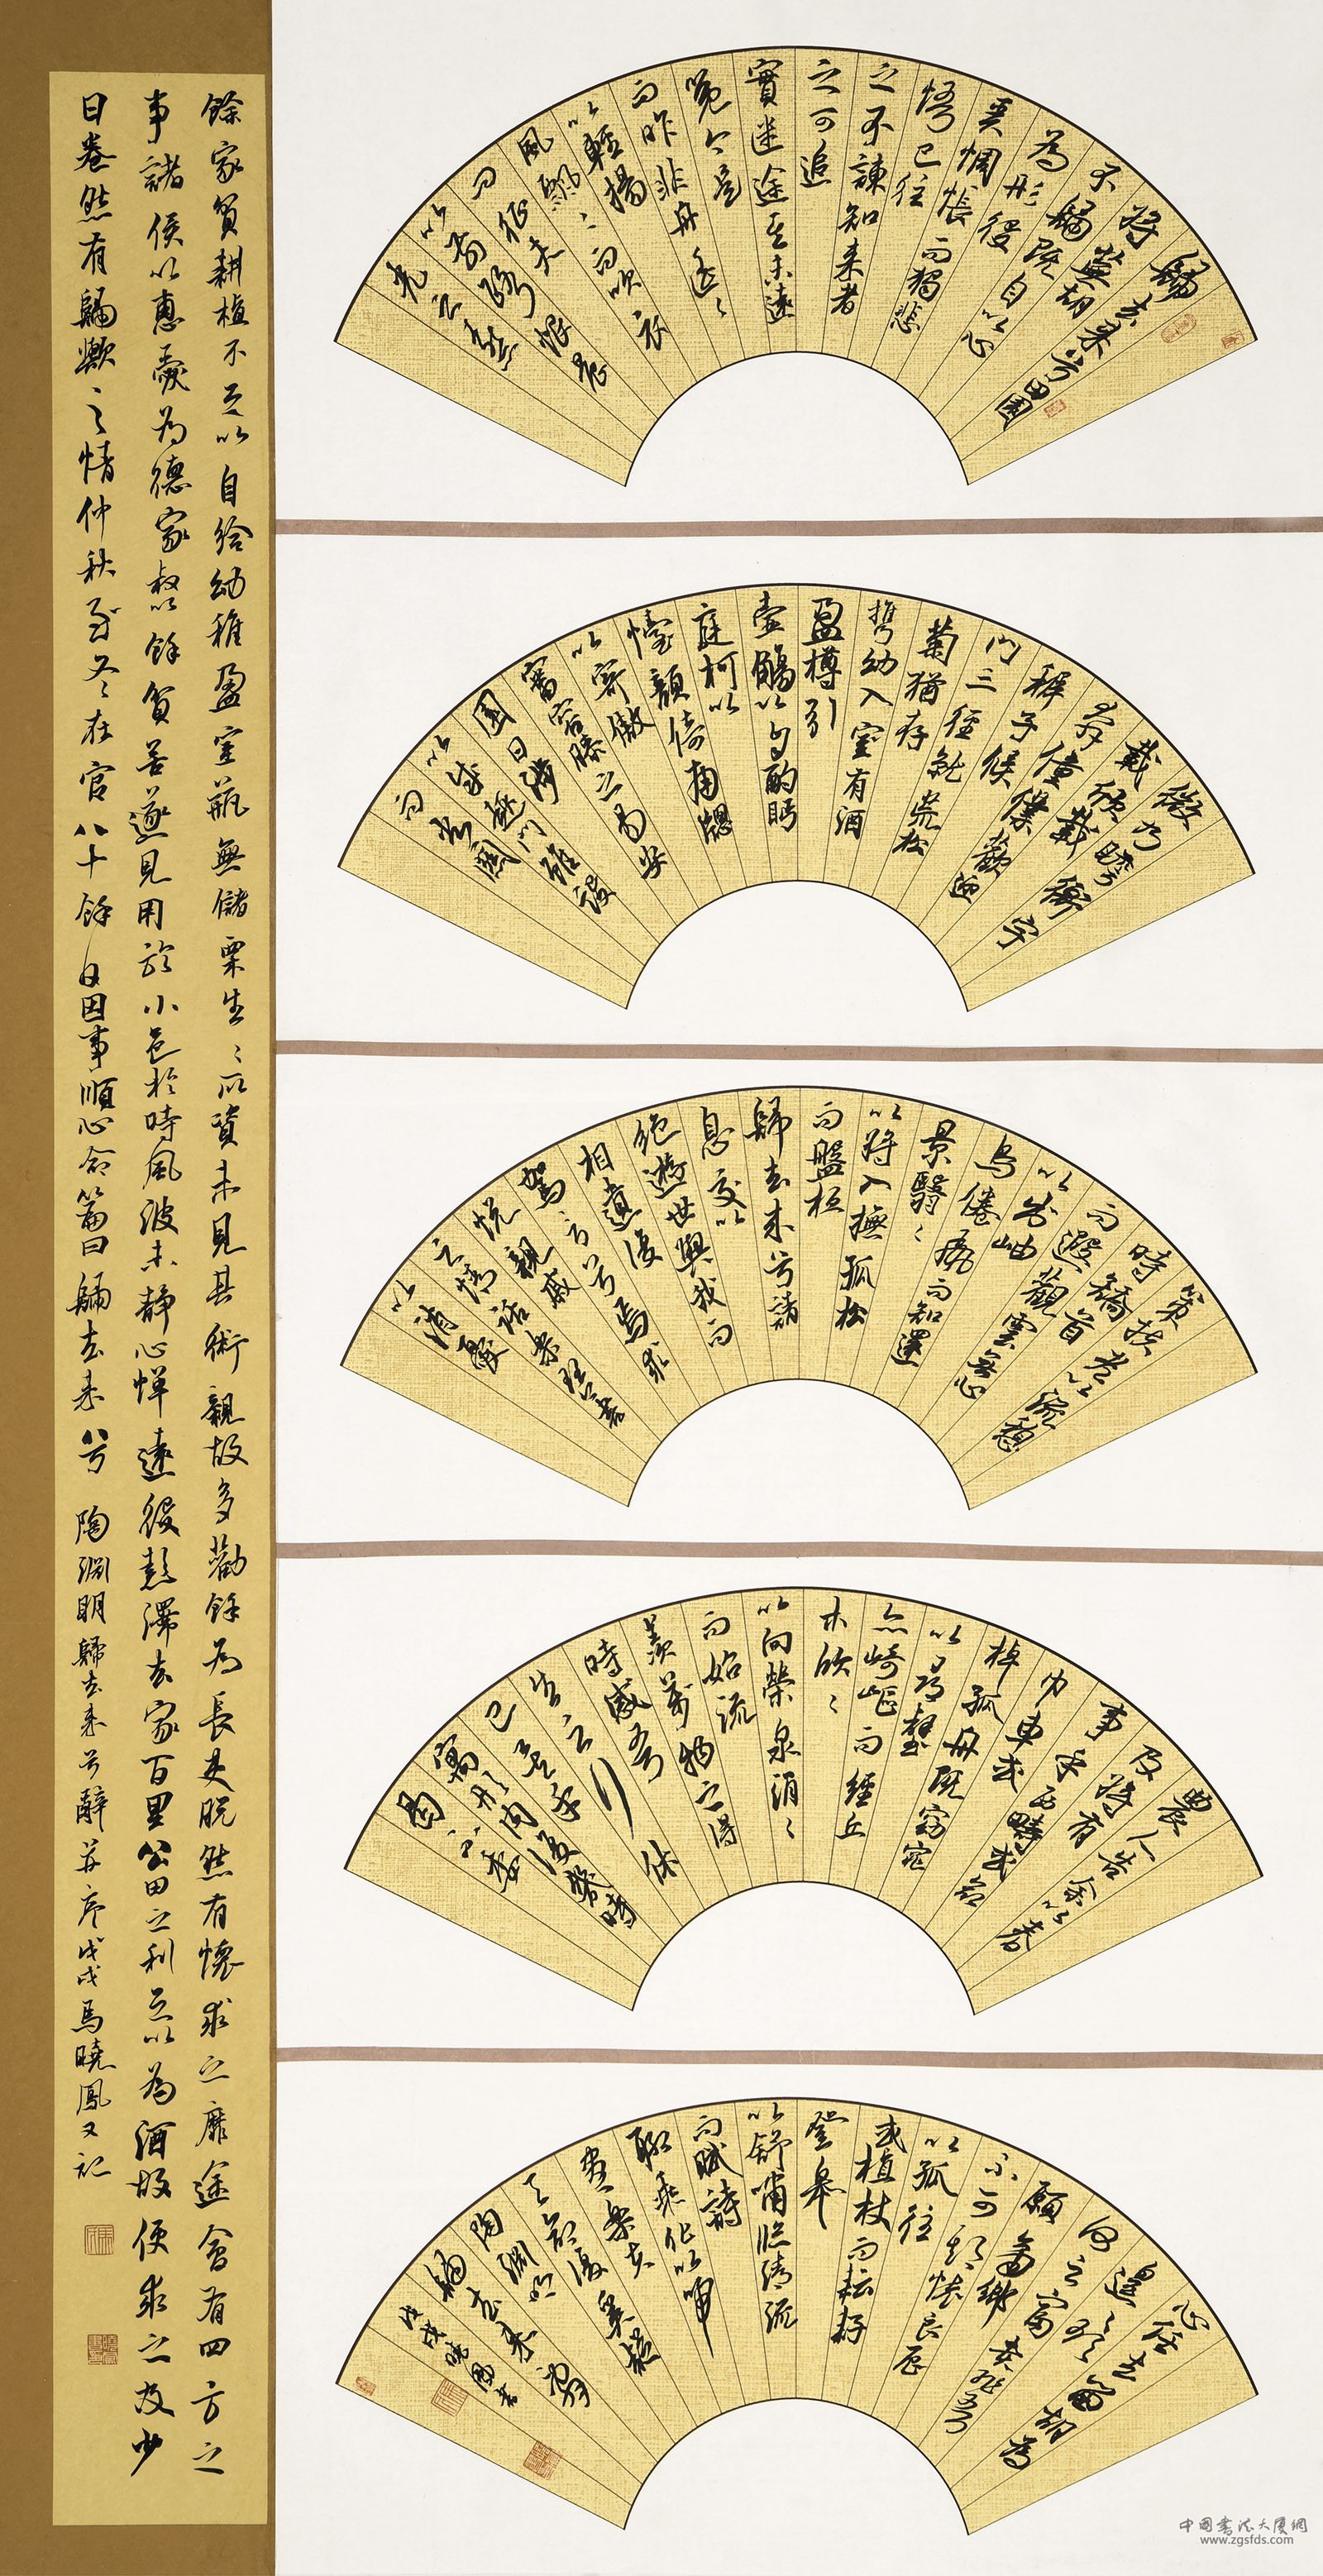 歸去來兮田園
將蕪胡
不歸既自以心
為形役
奚惆悵而獨悲
悟已往
之不諫知來者
之可追
實迷途其未遠
覺今是
而昨非舟遙〻
以輕揚
風飄〻而吹衣
問征夫
以前路恨晨
光之熹
微乃瞻衡宇
載欣載
奔僮僕歡迎
稚子候
門三徑就荒松
菊猶存
攜幼入室有酒
盈樽引
壺觴以自酌眄
庭柯以
怡顏倚南窗
以寄傲
審容膝之易安
園日涉
以成趣門雖設
而常關
策扶老以流憩
時矯首
而遐觀雲無心
以出岫
鳥倦飛而知還
景翳〻
以將入撫孤松
而盤桓
歸去來兮請
息交以
絕遊世與我而
相遺復
駕言兮焉求
悅親戚
之情話樂琴書
以消憂
農人告余以春
及將有
事乎西疇或命
巾車或
棹孤舟既窈窕
以尋壑
亦崎嶇而經丘
木欣〻
以向榮泉涓〻
而始流
羨萬物之得
時感吾
生之行休
已矣乎
寓形內復幾時
曷不委
心任去留胡為
遑〻欲
何之富貴非吾
願帝鄉
不可期懷良辰
以孤往
或植杖而耘耔
登皋
以舒嘯臨清流
而賦詩
聊乘化以歸
盡樂夫
天命復奚疑
陶淵明
歸去來辭
戊戌曉鳳書
餘家貧耕植不足以自給幼稚盈室瓶無儲粟生〻所資未見其術親故多勸餘為長吏脫然有懷求之靡途會有四方之
事諸侯以惠愛為德家叔以餘貧苦遂見用於小邑於時風波未靜心憚遠役彭澤去家百里公田之利足以為酒故便求之及少
日眷然有歸歟之情仲秋至冬在官八十餘日因事順心命篇曰歸去來兮 陶淵明歸去來兮辭並序戊戌馬曉鳳又記
中國書法大廈網
www.zgsfds.com